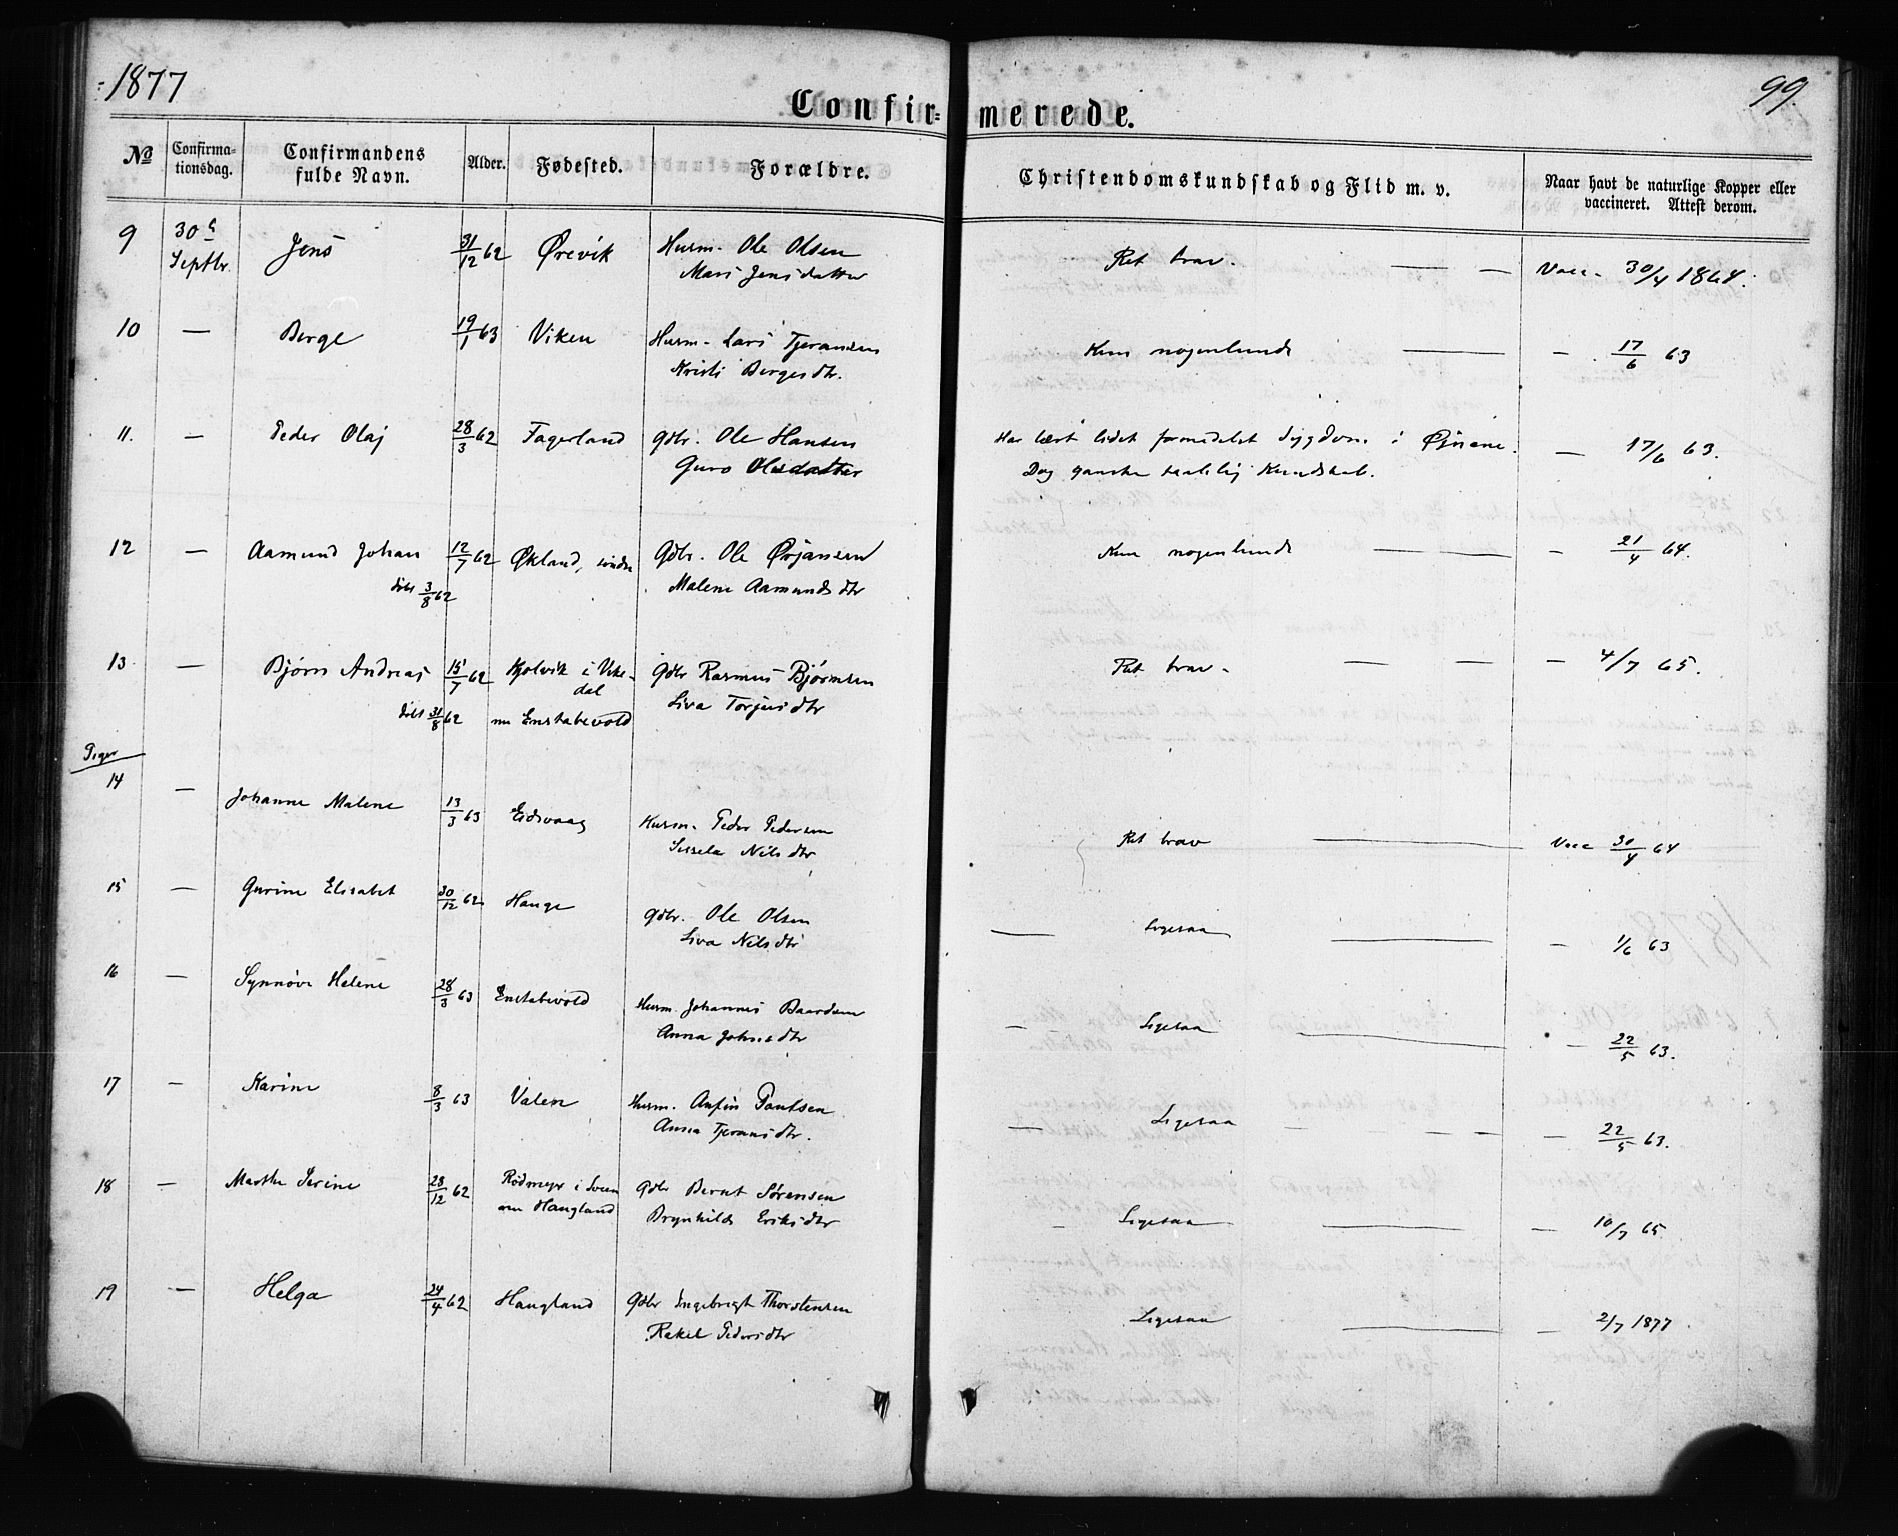 1877
99.
Confir= merede.
No
Confirma-
tionsdag.
Confirmandens
fulde Navn.
Alder.
Fødested.
Forældre.
Christendomskundskab og Flid m. v.
Naar havt de naturlige Kopper eller
vaccineret. Attest derom.
9 30te Septbr. Jens 31/12 62 Ørevik Husm. Ole Olsen Ret brav. — — Vacc. 30/4 1864.
Mari Jensdatter
10 — Berge 19/1 63 Viken Husm. Lars Tjeransen Kun nogenlunde — — 17/6 63
Kristi Bergesdtr.
11. — Peder Olaj 28/3 62 Fagerland Gdbr. Ole Hansen Har lært lidet formedelst Sygdom i Øjnene. — 17/6 63.
Guro Olsdatter Dog ganske taalelig Kundskab.
12 — Aamund Johan 12/7 62 Økland, søndre Gdbr. Ole Ørjansen Kun nogenlunde — — 21/4 64.
døbt 3/8 62 Malene Aamundsdtr
13. — Bjørn Andreas 15/7 62 Kjølvik i Vike- Gdbr Rasmus Bjørnsen Ret brav — — — 4/7 65.
dal
døbt 31/8 62 nu Enstabevold Siva Torjusdtr
Piger
14 — Johanne Malene 13/3 63 Eidsvaag Husm. Peder Pedersen Ret brav — Vacc 30/4 64
Sissela Nilsdtr
15 — Gurine Elisabet 30/12 62 Hauge Gdbr. Ole Olsen — Ligesaa — — 1/6 63
Siva Nilsdtr
16 — Synnøve Helene 28/3 63 Enstabevold Husm. Johannes Baardsen — Ligesaa — — 22/5 63.
Anna Johnsdtr
17 — Karine 8/3 63 Valen Husm. Anfin Poulsen — Ligesaa — — — — 22/5 63.
Anna Tjeransdtr.
18 — Marthe Serine 28/12 62 Rødmyr i Sveen Gdbr Bernt Sørensen — Ligesaa — — 10/7 65
nu Haugland Brynhilda Eriksdtr
19 — Helga 24/4 62 Haugland Gdbr Ingebregt Thorstensen Ligesaa — — 2/7 1877.
Rakel Pedersdtr